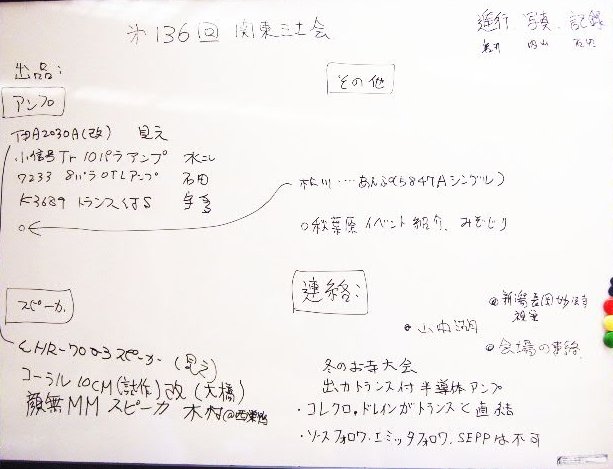 第136回 関東三土会
運行 写真 記録
内山
出品:
アンプ
その他
TDA2030A(改) 見え
小信号Tr 10パラアンプ 水二
7233 8パラOTLアンプ 石田
K3689 トランス付S 宇多
林川・・・・あんぷ(5847Aシングル)
○秋葉原イベント紹介、みぞぐり
スピーカ
連絡:
HR-7003スピーカー (見え)
コーラル10CM(試作)改 (大橋)
顔無MMスピーカ 木村@西巣鴨
◎新潟長岡
◎山中湖
◎会場の
冬のお寺大会
出力トランス付半導体アンプ
・コレクタ、ドレインがトランスと直結
・ソースフォロワ・エミッタフォロワ、SEPPは不可